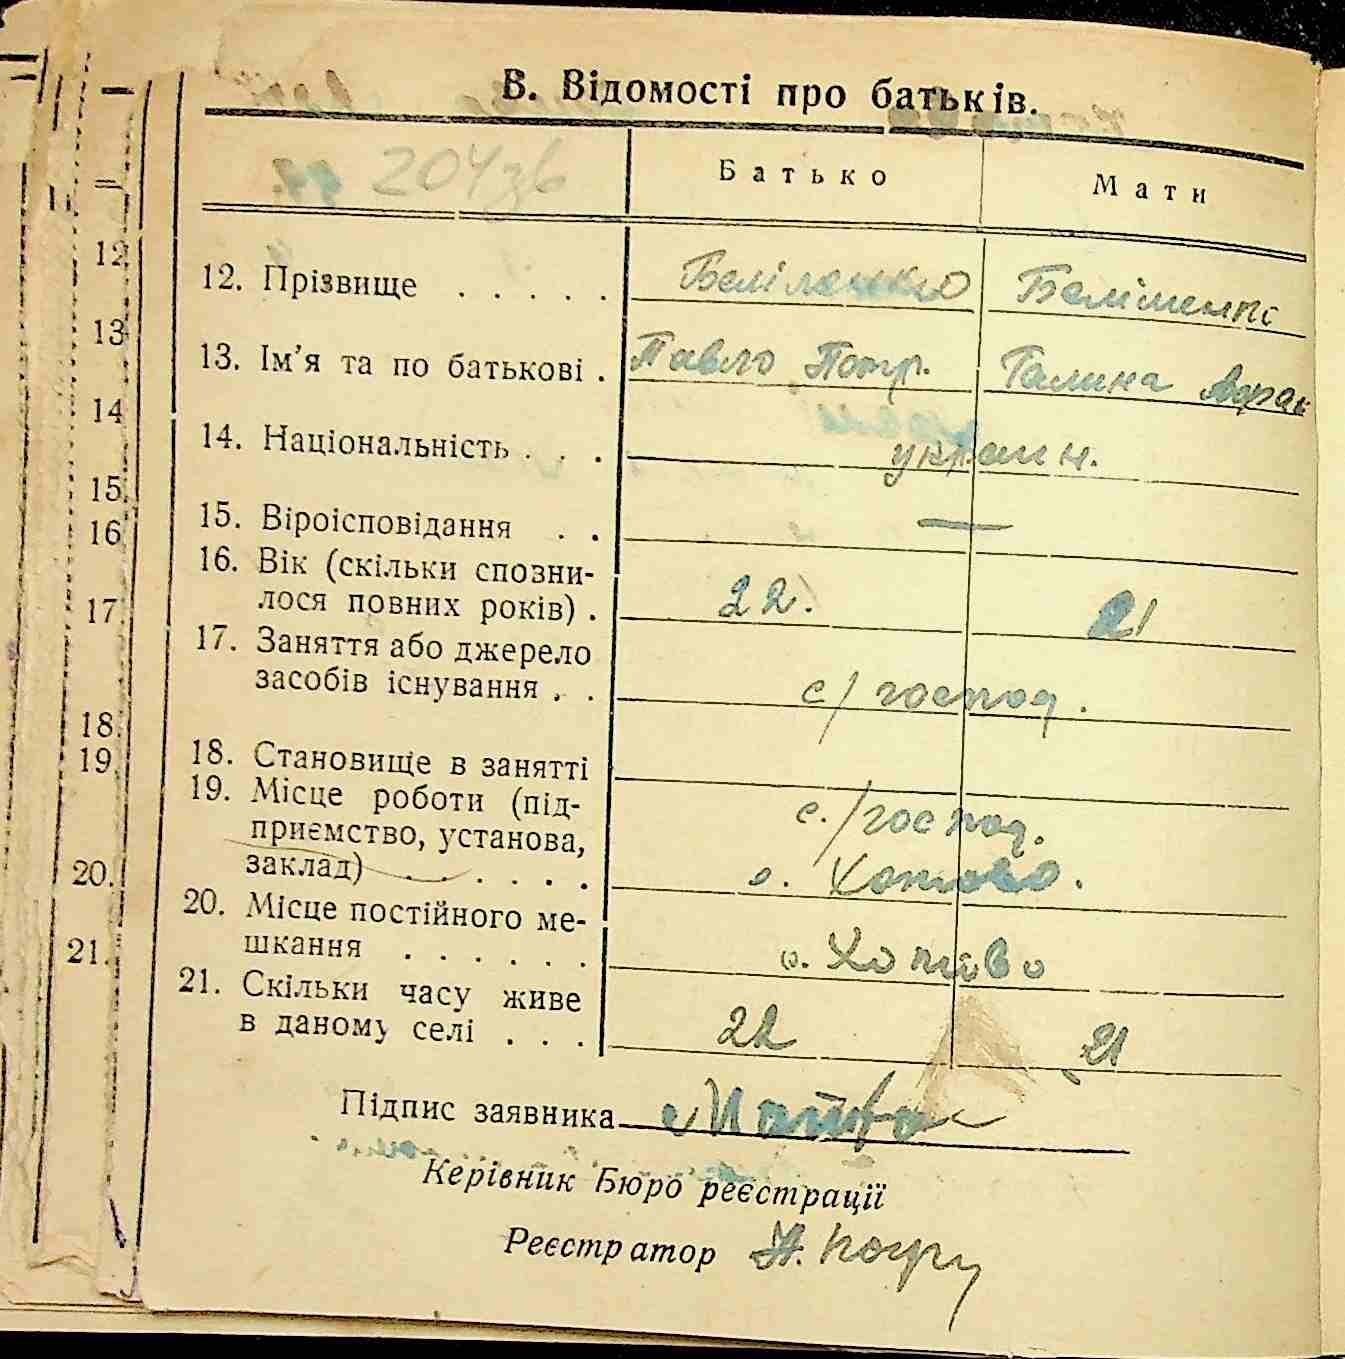 В. Відомості про батьків.
204зв
Батько Мати
12. Прізвище . . . . .
13. Ім'я та по батькові . Павло Петр. Галина
14. Національність . . . україн.
15. Віроісповідання . . —
16. Вік (скільки спозни-
лося повних років) . 22. 21
17. Заняття або джерело
засобів існування . . с/господ.
18. Становище в занятті
19. Місце роботи (під- с./господ.
приємство, установа,
заклад) . . . . . . с. Хотово.
20. Місце постійного ме-
шкання . . . . . . с. Хотово
21. Скільки часу живе
в даному селі . . . 22 21
Підпис заявника
Керівник Бюро реєстрації
Реєстратор
12
13
14
15
16
17
18
19
20.
21.